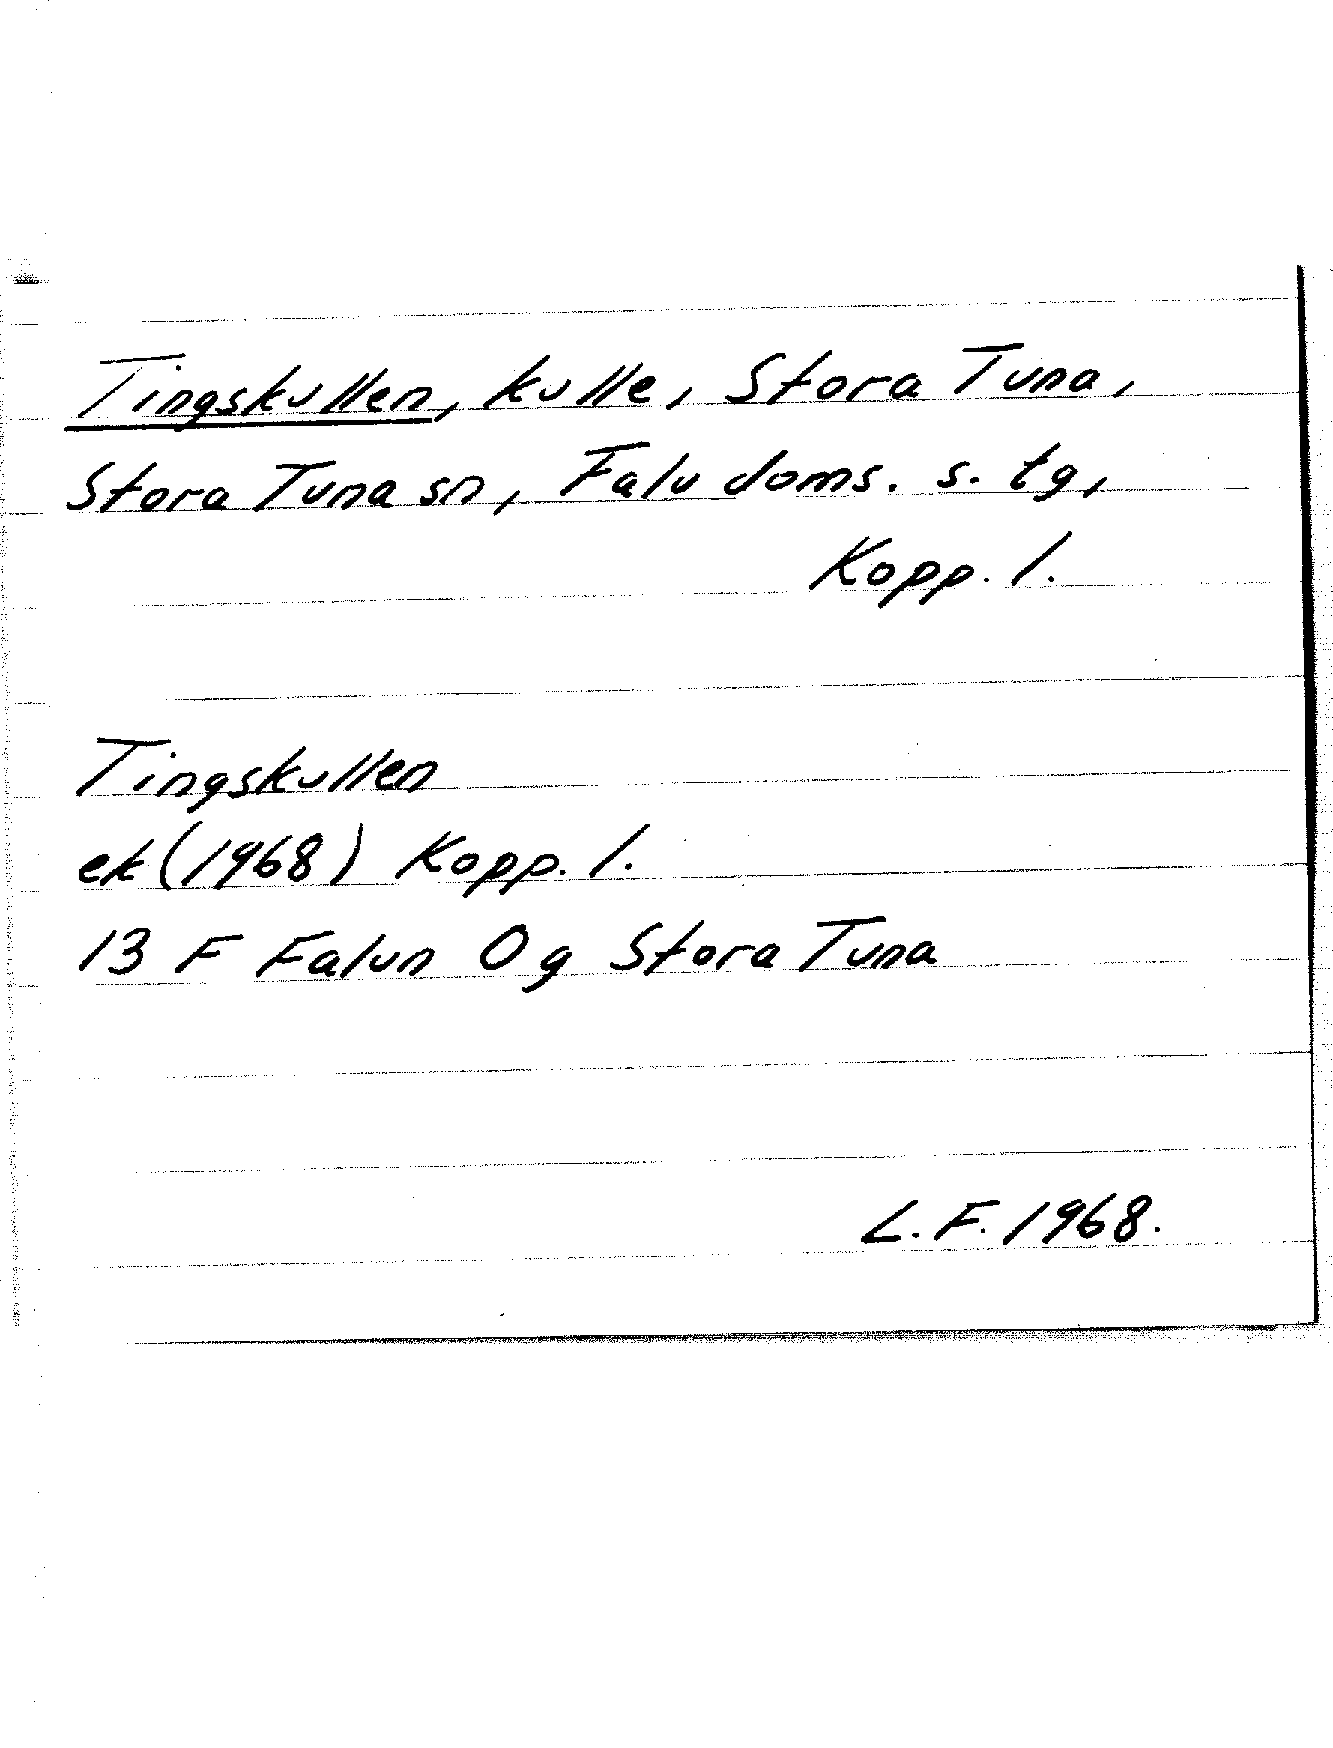 Tingskullen, kulle, Stora Tuna,
Stora Tuna sn, Falu doms. s. tg,
Kopp. l.
Tingskullen
ek (1968) Kopp. l.
13 F Falun 0 g Stora Tuna
L. F. 1968.